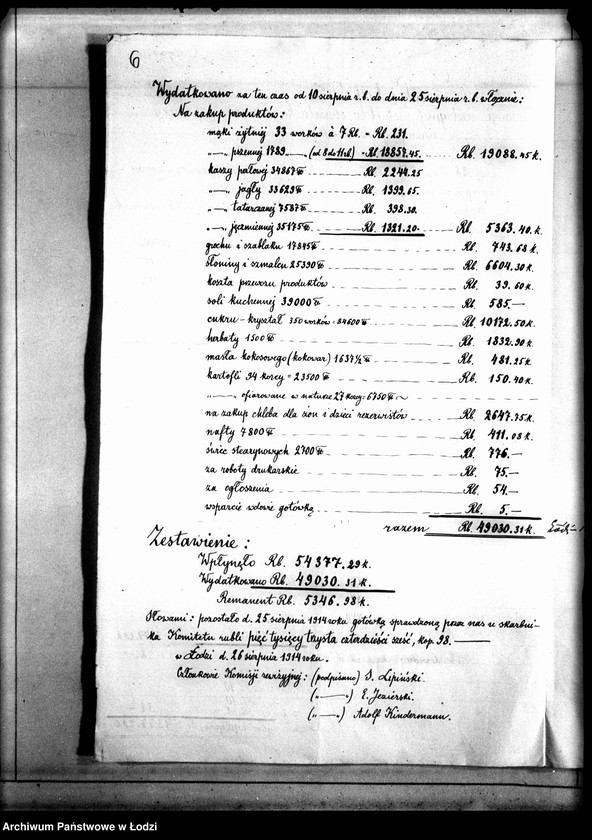 6
Wydatkowano za ten czas od 10 sierpnia r.b. do dnia 25 sierpnia r.b. włącznie:
Na zakup produktów:
mąki żytniej 33 worków à 7 Rb. = Rb. 231.
—„— pszennej 1789 —„— (od 8 do 11 rb.) = Rb. 18857.45. Rb. 19088.45 k.
kaszy palowej 34867 ℔ Rb. 2244.25
—„— jagły 33629 ℔ Rb. 1399.65.
—„— tatarczanej 7587 ℔ Rb. 398.30.
—„— jęczmiennej 35175 ℔ Rb. 1321.20. Rb. 5363.40 k.
grochu i szablaku 17845 ℔ Rb. 743.68 k.
słoniny i szmalcu 25390 ℔ Rb. 6604.30 k.
koszta przewozu produktów Rb. 39.60 k.
soli kuchennej 39000 ℔ Rb. 585.—
cukru-kryształ 350 worków = 84600 ℔ Rb. 10172.50 k.
herbaty 1500 ℔ Rb. 1832.90 k.
masła kokosowego (kokowar) 1637½ ℔ Rb. 481.25 k.
kartofli 94 korcy = 23500 ℔ Rb. 150.40 k.
—„— ofiarowane w naturze 27 korcy = 6750 ℔
na zakup chleba dla żon i dzieci rezerwistów Rb. 2647.75 k.
nafty 7800 ℔ Rb. 411.08 k.
świec stearynowych 2700 ℔ Rb. 776.—
za roboty drukarskie Rb. 75.—
za ogłoszenia Rb. 54.—
wsparcie wdowie gotówką Rb. 5.—
razem Rb. 49030.31 k.
Zestawienie:
Wpłynęło Rb. 54377.29 k.
Wydatkowano Rb. 49030.31 k.
Remanent Rb. 5346.98 k.
Słowami: pozostało d. 25 sierpnia 1914 roku gotówką sprawdzoną przez nas u skarbni-
ka Komitetu rubli pięć tysięcy trzysta czterdzieści sześć, kop. 98.
w Łodzi d. 26 sierpnia 1914 roku.
Członkowie Komisji rewizyjnej: (podpisano) S. Lipiński.
(—„—) E. Jezierski.
(—„—) Adolf Kindermann.
Archiwum Państwowe w Łodzi